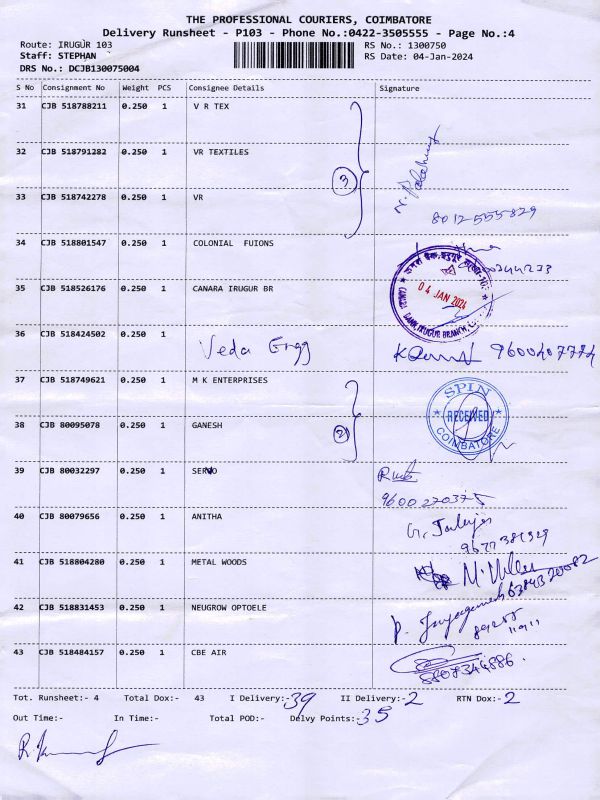 THE PROFESSIONAL COURIERS, COIMBATORE
Delivery Runsheet - P103 - Phone No.:0422-3505555 - Page No.:4
Route: IRUGUR 103 RS No.: 1300750
Staff: STEPHAN RS Date: 04-Jan-2024
DRS No.: DCJB130075004
S No Consignment No Weight PCS Consignee Details Signature
31 CJB 518788211 0.250 1 V R TEX
32 CJB 518791282 0.250 1 VR TEXTILES
3
33 CJB 518742278 0.250 1 VR
8012555829
34 CJB 518801547 0.250 1 COLONIAL FUIONS
35 CJB 518526176 0.250 1 CANARA IRUGUR BR
04 JAN 2024
36 CJB 518424502 0.250 1 Veda Engg
9600407774
37 CJB 518749621 0.250 1 M K ENTERPRISES
SPIN
RECEIVED
COIMBATORE
38 CJB 80095078 0.250 1 GANESH
2
39 CJB 80032297 0.250 1 SERVO
9600270375
40 CJB 80079656 0.250 1 ANITHA
41 CJB 518804280 0.250 1 METAL WOODS
42 CJB 518831453 0.250 1 NEUGROW OPTOELE
43 CJB 518484157 0.250 1 CBE AIR
8807344886.
Tot. Runsheet:- 4 Total Dox:- 43 I Delivery:-39 II Delivery:-2 RTN Dox:-2
Out Time:- In Time:- Total POD:- Delvy Points:-35